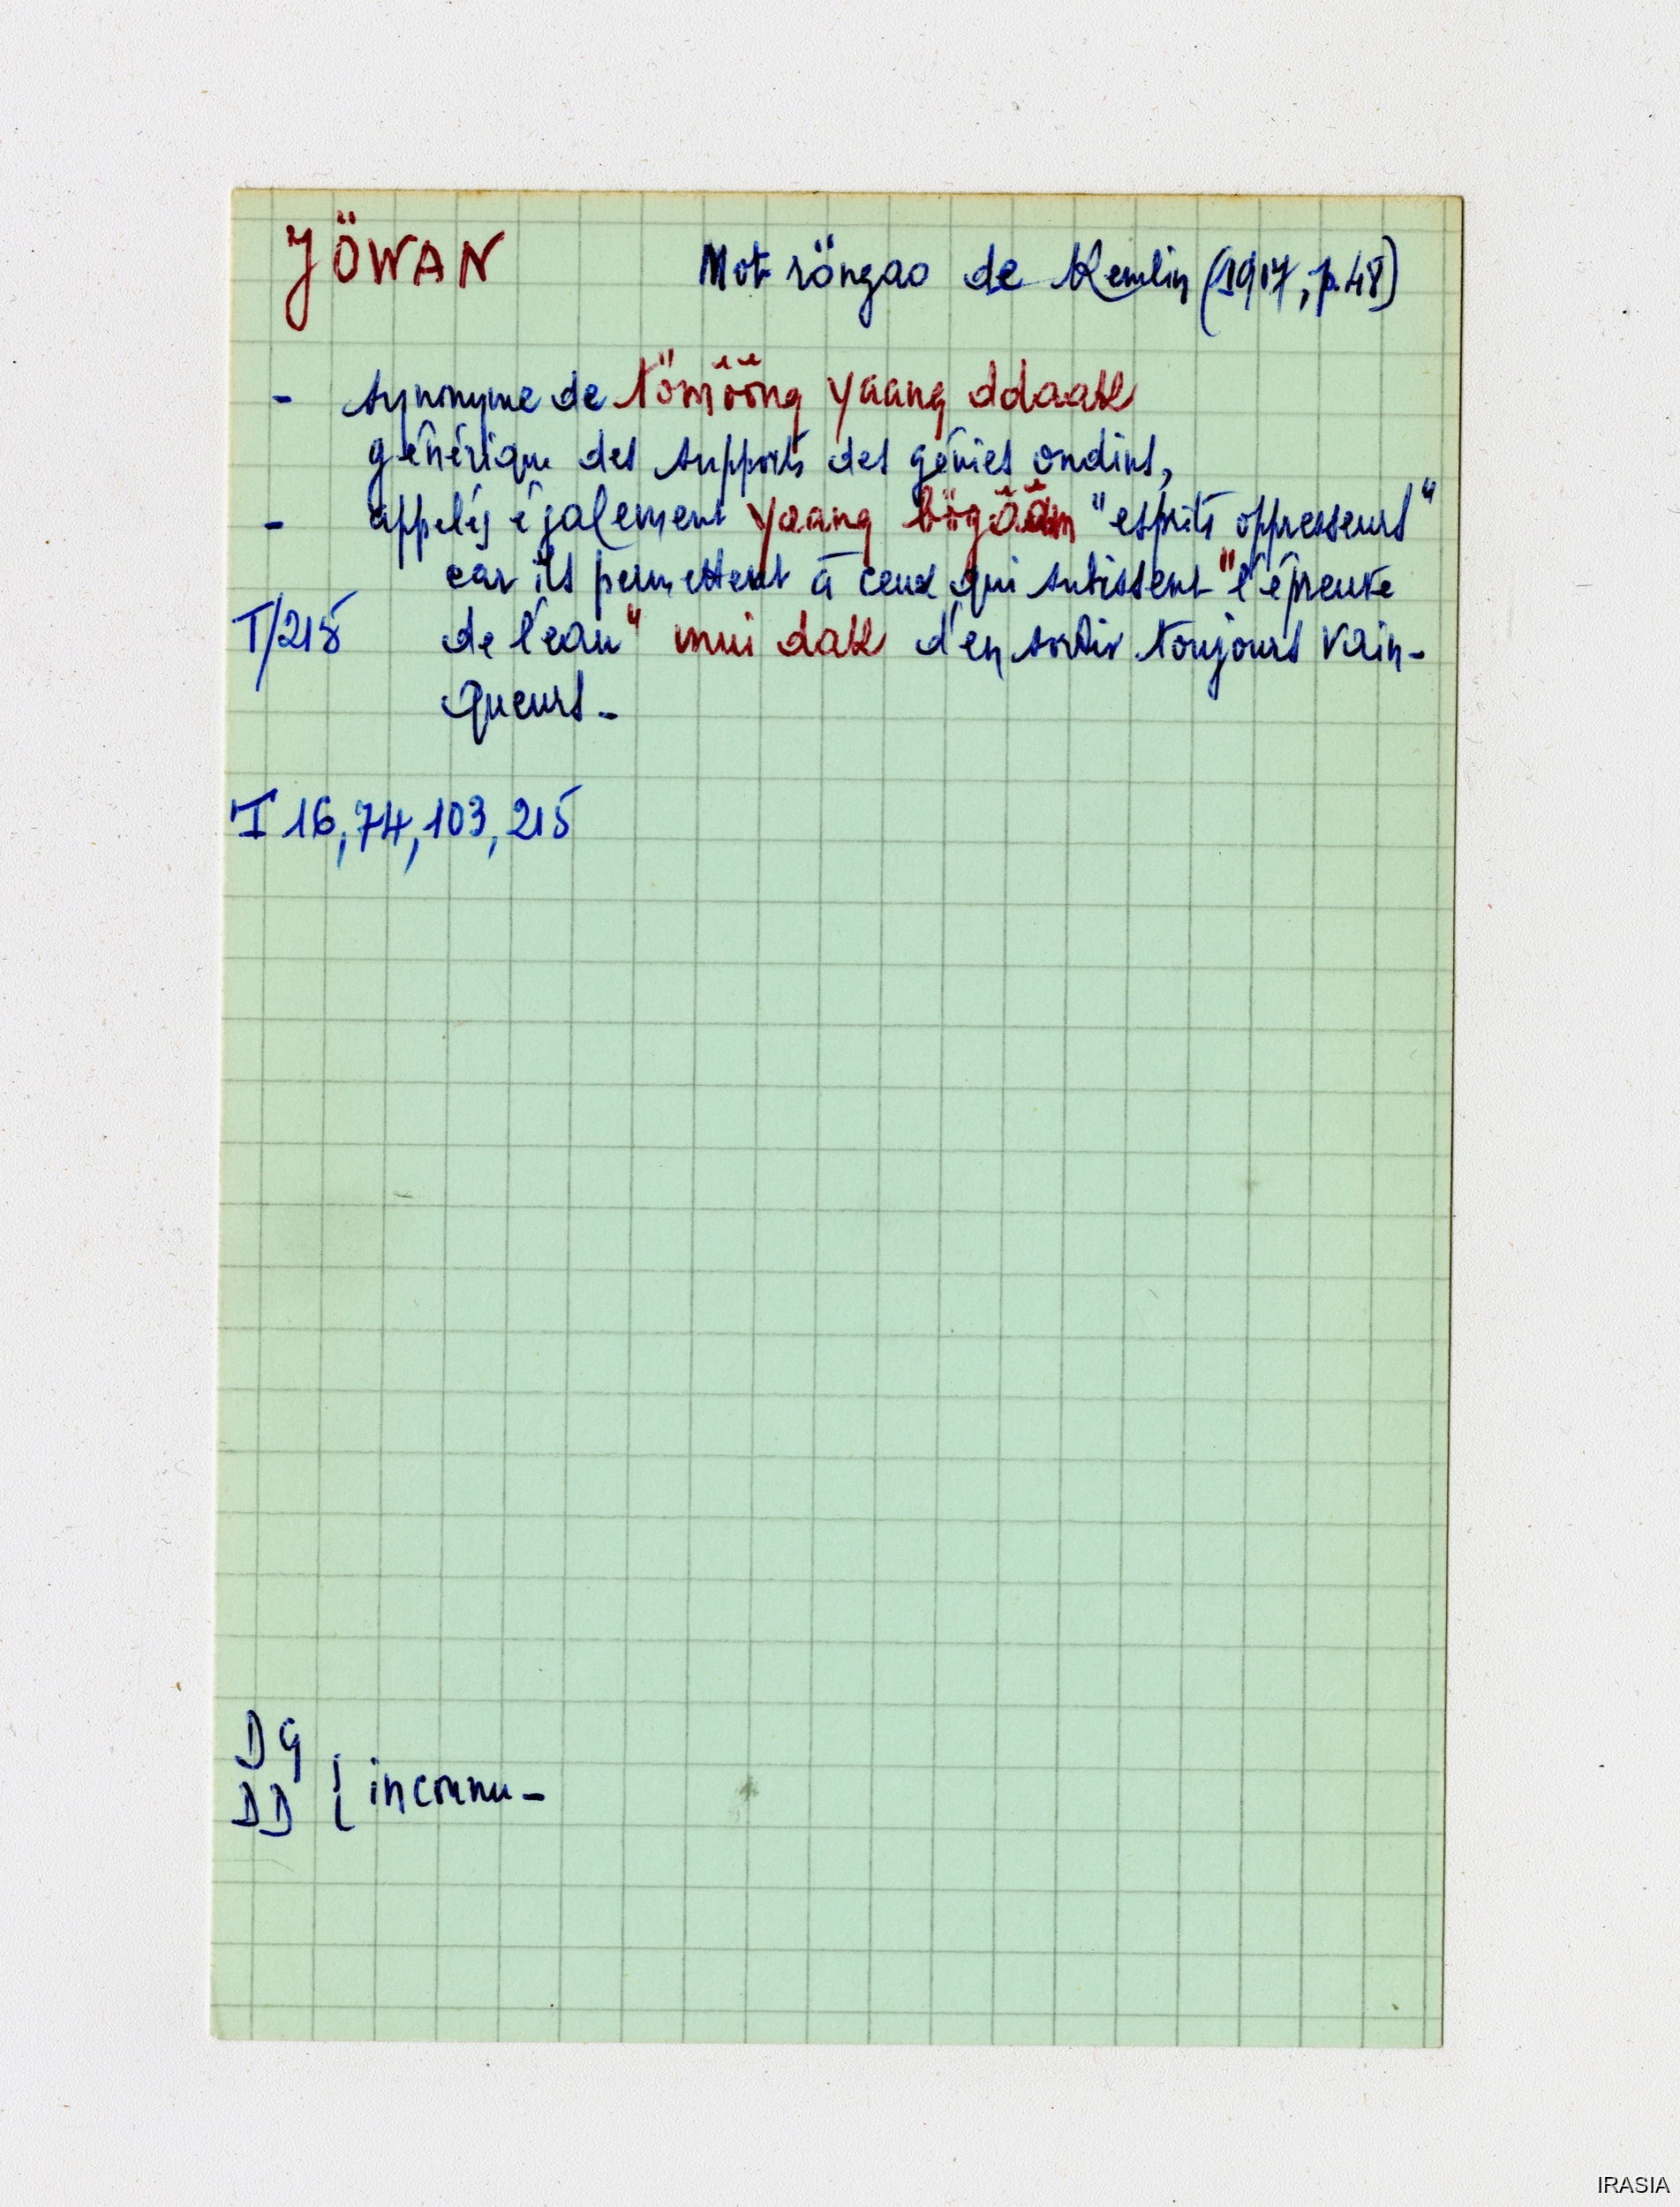 JÖWAN Mot röngao de Kemlin (1917, p.48)
- synonyme de tömööng yaang ddaak
générique des supports des génies ondins,
- appelés également yaang bögââm "esprits oppresseurs"
car ils permettent à ceux qui subissent "l'épreuve
T/215 de l'eau" muui dak d'en sortir toujours vain-
queurs-
T 16, 74, 103, 215
DG
DD { inconnu-
IRASIA